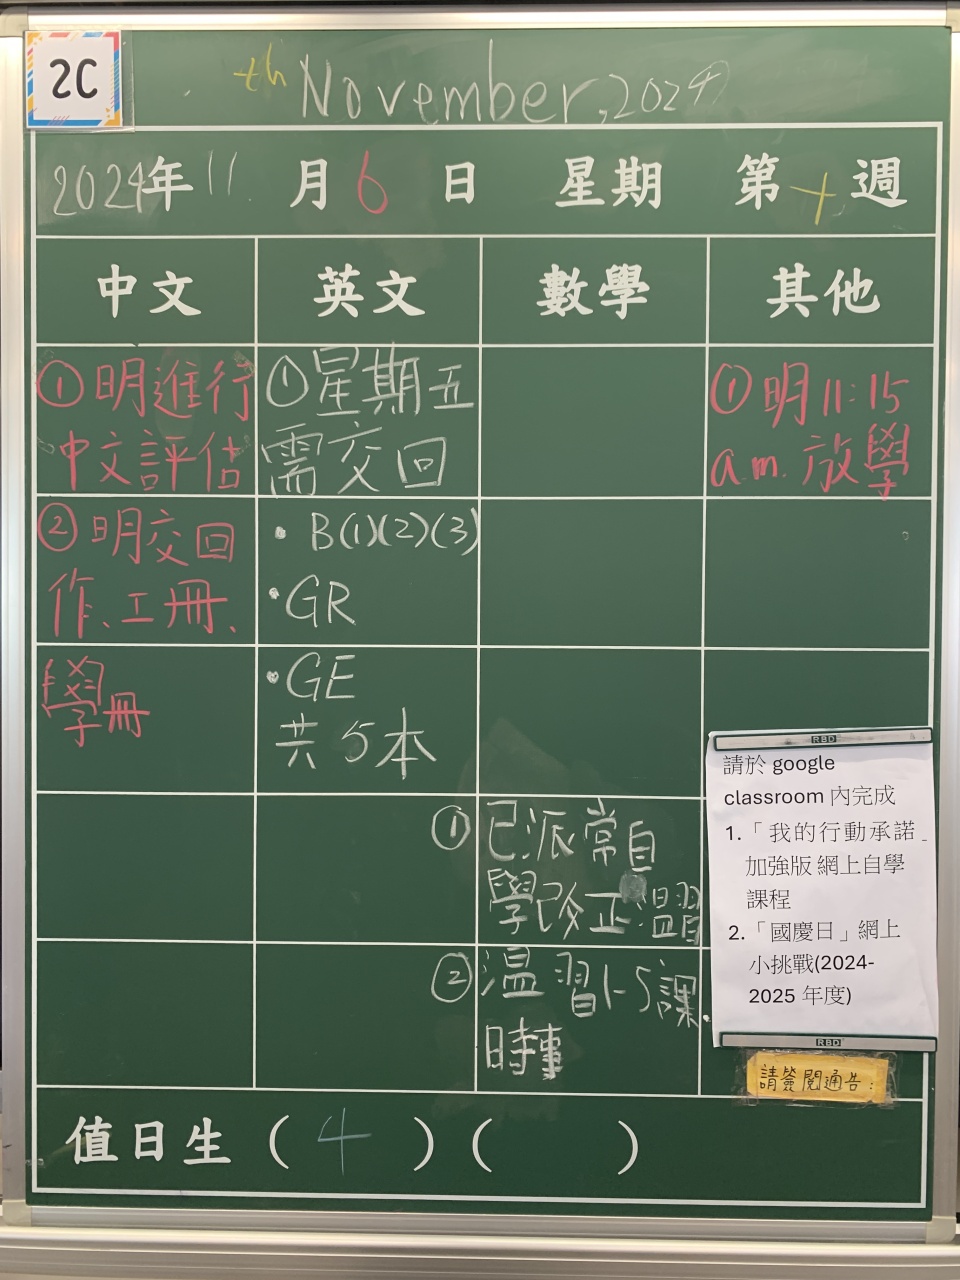 2C
th November, 2024
2024年11月6日 星期 第十週
中文 英文 數學 其他
①明進行
中文評估
②明交回
作、工冊、
學冊
①星期五
需交回
• B(1)(2)(3)
• GR
• GE
共5本
①已派常自
學改正溫習
②溫習1-5課
時事
①明11:15
a.m. 放學
RBD
請於 google
classroom 內完成
1.「我的行動承諾
加強版 網上自學
課程
2.「國慶日」網上
小挑戰(2024-
2025 年度)
RBD
請簽閱通告:
值日生（4）（ ）